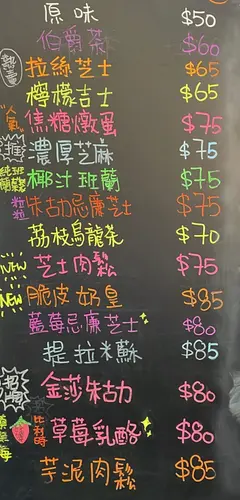 原味 $50
伯爵茶 $60
熱賣 拉絲芝士 $65
檸檬吉士 $65
人氣 焦糖燉蛋 $75
推 濃厚芝麻 $75
純班蘭 椰汁班蘭 $75
粒粒 朱古力忌廉芝士 $75
荔枝烏龍茶 $70
NEW 芝士肉鬆 $75
NEW 脆皮奶皇 $85
藍莓忌廉芝士 $80
提拉米蘇 $85
招牌 金莎朱古力 $80
比利時 草莓乳酪 $80
芋泥肉鬆 $85